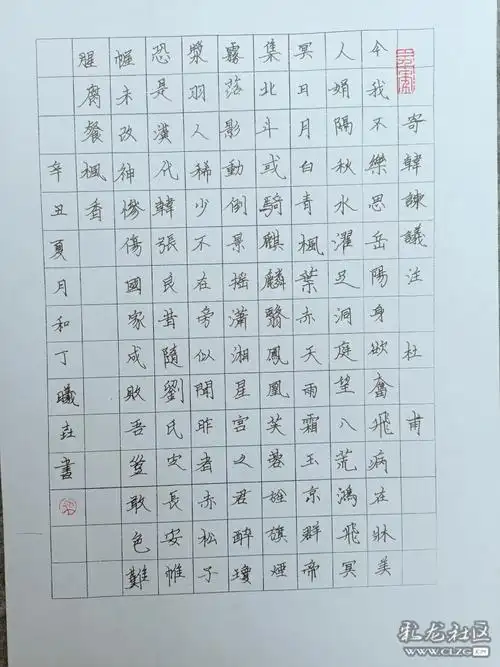 寄韓諫議注 杜甫
今我不樂思岳陽身欲奮飛病在牀美
人娟隔秋水濯足洞庭望八荒鴻飛冥
冥日月白青楓葉赤天雨霜玉京群帝
集北斗或騎麒麟翳鳳凰芙蓉旌旗煙
霧落影動倒景搖瀟湘星宮之君醉瓊
漿羽人稀少不在旁似聞昨者赤松子
恐是漢代韓張良昔隨劉氏定長安帷
幄未改神慘傷國家成敗吾豈敢色難
腥腐餐楓香
辛丑夏月和丁曦垚書
彩龙社区
www.clzg.cn